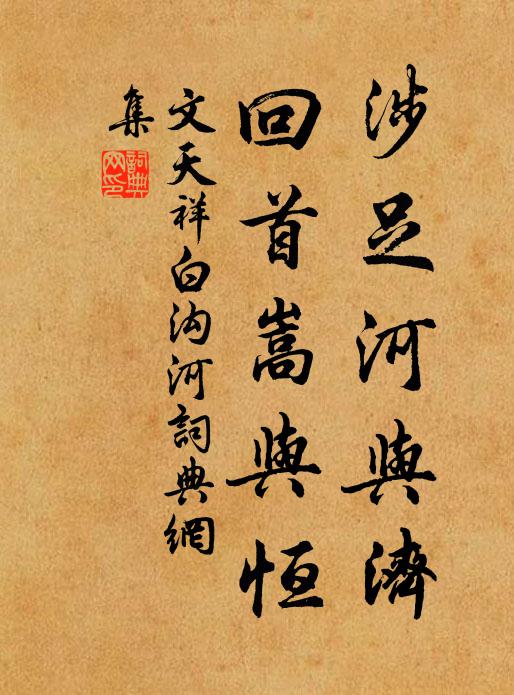 涉足河與濟
回首嵩與恒
文天祥白沟河詞典網
集
詞典网印